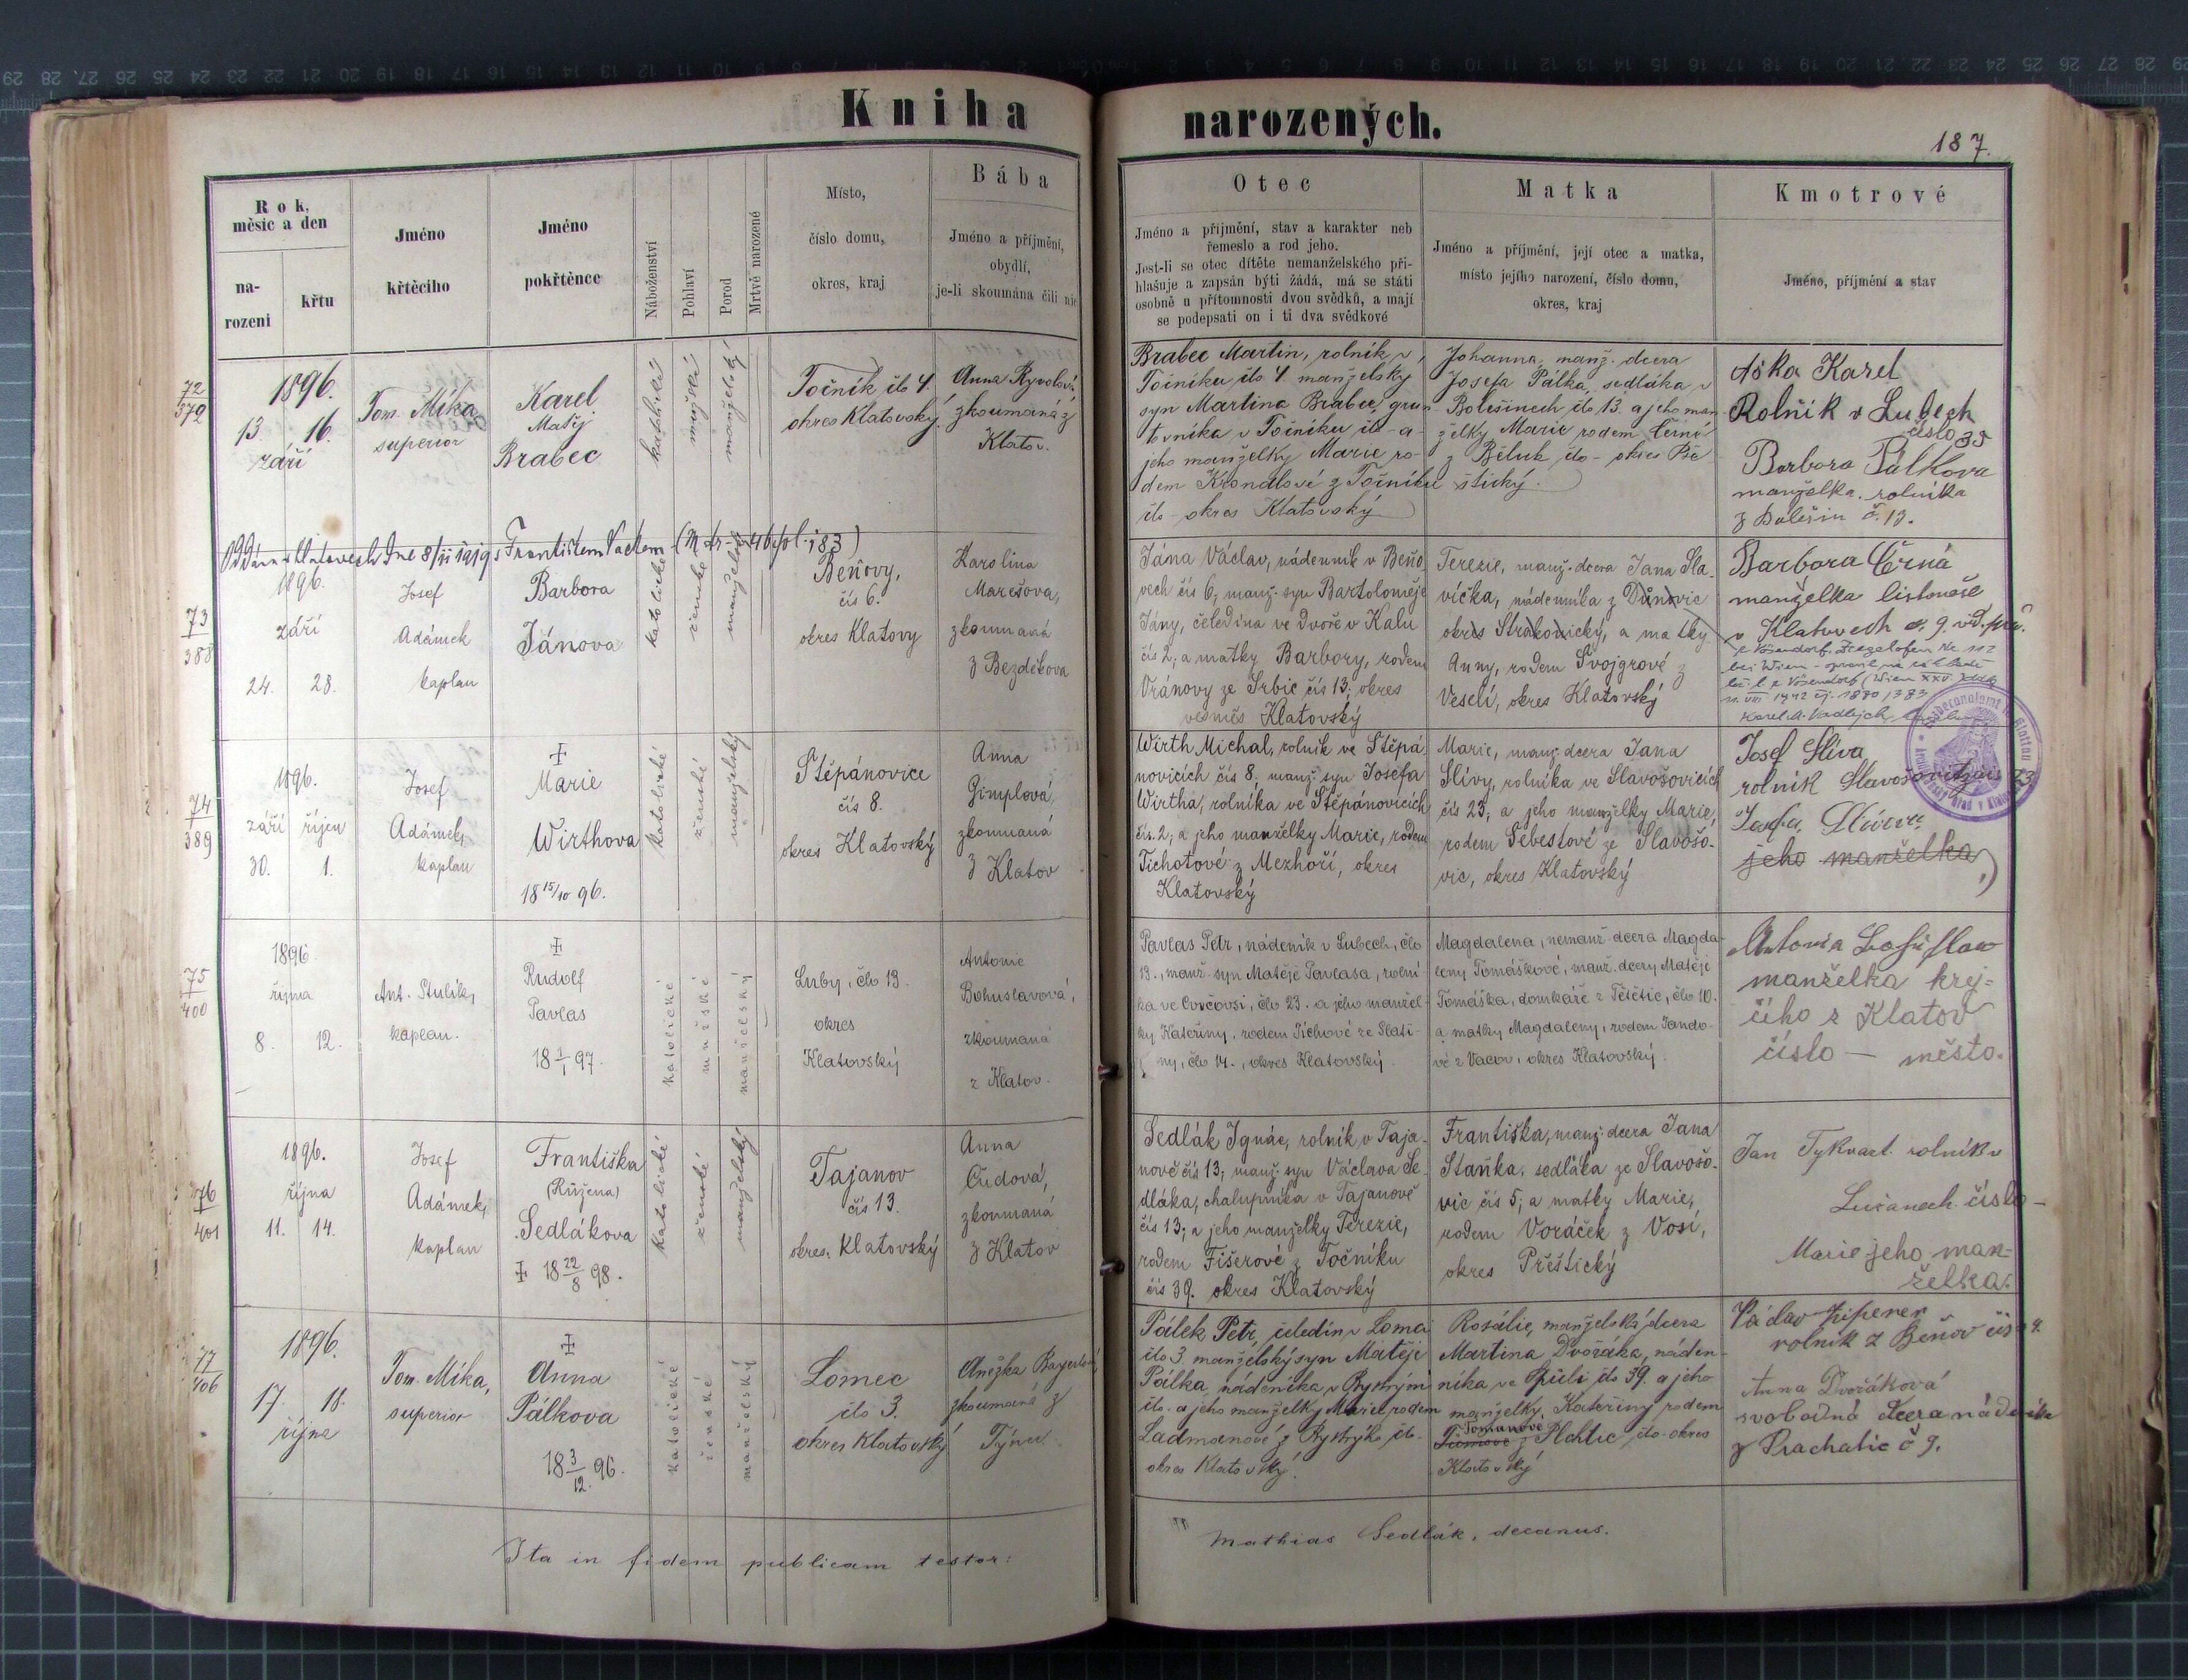 Kniha narozených.
187.
Rok, měsíc a den
narození
křtu
Jméno křtěcího
Jméno pokřtěnce
Náboženství
Pohlaví
Porod
Mrtvě narozené
Místo,
číslo domu,
okres, kraj
Bába
Jméno a příjmění,
obydlí,
je-li skoumána čili nic
Otec
Jméno a přijmění, stav a karakter neb
řemeslo a rod jeho.
Jest-li se otec dítěte nemanželského při-
hlašuje a zapsán býti žádá, má se státi
osobně u přítomnosti dvou svědků, a mají
se podepsati on i ti dva svědkové
Matka
Jméno a příjmění, její otec a matka,
místo jejího narození, číslo domu,
okres, kraj
Kmotrové
Jméno, příjmění a stav
72
379
1896.
13. 16.
září
Tom. Míka
superior
Karel
Matěj
Brabec
katolické
mužské
manželský
Točník čło 4.
okres Klatovský
Anna
zkoumaná z
Klatov.
Brabec Martin, rolník v
Točníku čło 4. manželský
syn Martina Brabec, grun-
tovníka v Točníku čło - a
jeho manželky Marie ro-
dem z Točníku
čło - okres Klatovský
Johanna, manž. dcera
Josefa Pálka, sedláka v
Bolešinech čło 13. a jeho man
želky Marie rodem Černé
z Běluk čło - okres Pře
štický.
Karel
Rolník v Lubech
číslo 35
Barbora Pálkova
manželka rolníka
z Bolešin č. 13.
73
388
1896.
září
24. 28.
Josef
Adámek
kaplan
Barbora
Jánova
katolické
ženské
manželský
Beňovy,
čís 6.
okres Klatovy
Karolina
Marešova,
zkoumaná
z Bezděkova
Jána Václav, nádenník v Beňo
vech čís 6, manž. syn Bartoloměje
Jány, čeledína ve Dvoře v Kalu
čís 2, a matky Barbory, rodem
Vránovy ze Srbic čís 13; okres
vesměs Klatovský
Terezie, manž. dcera Jana Sla-
víčka, nádenníka z
okres Strakonický, a matky
Anny, rodem Svojgrové z
Veselí, okres Klatovský
Barbora Černá
manželka listonoše
v Klatovech č. 9.
74
389
1896.
září říjen
30. 1.
Josef
Adámek,
kaplan
Marie
Wirthova
18 15/10 96.
katolické
ženské
manželský
Štěpánovice
čís 8.
okres Klatovský
Anna
Gimplová,
zkoumaná
z Klatov
Wirth Michal, rolník ve Štěpá-
novicích čís 8. manž. syn Josefa
Wirtha, rolníka ve Štěpánovicích
čís. 2; a jeho manželky Marie, rodem
Tichotové z Mezhoří, okres
Klatovský
Marie, manž. dcera Jana
Slívy, rolníka ve Slavošovicích
čís 23, a jeho manželky Marie,
rodem Šebestové ze Slavošo-
vic, okres Klatovský
Josef Slíva
rolník 23
jeho manželka
75
400
1896
října
8. 12.
Ant. Stulík,
kaplan.
Rudolf
Pavlas
18 1/1 97.
katolické
mužské
manželský
Luby, čło 13.
okres
Klatovský
Antonie
Bohuslavová,
zkoumaná
z Klatov.
Pavlas Petr, nádeník v Lubech, čło
13., manž. syn Matěje Pavlasa, rolní-
ka ve čło 23. a jeho manžel-
ky Kateřiny, rodem Tichové ze Slati-
ny, čło 14., okres Klatovský.
Magdalena, nemanž. dcera Magda-
leny Tomáškové, manž. dcery Matěje
Tomáška, domkáře z Tětětic, čło 10.
a matky Magdaleny, rodem Jando-
vé z Vacov, okres Klatovský.
Antonia
manželka krej-
čího z Klatov
číslo — město.
76
401
1896.
října
11. 14.
Josef
Adámek,
kaplan
Františka
(Růžena)
Sedlákova
18 22/8 98.
katolické
ženské
manželský
Tajanov
čís 13.
okres, Klatovský
Anna
Čudová,
zkoumaná
z Klatov
Sedlák Ignác, rolník v Taja-
nově čís 13; manž. syn Václava Se-
dláka, chalupníka v Tajanově
čís 13; a jeho manželky Terezie,
rodem Fišerové z Točníku
čís 39. okres Klatovský
Františka, manž. dcera Jana
Staňka, sedláka ze Slavošo-
vic čís 5; a matky Marie,
rodem Voráček z Vosí,
okres Přeštický
Jan Tykvart. rolník v
číslo -
Marie jeho man-
želka.
77
406
1896.
17. 18.
října
Tom. Míka,
superior
Anna
Pálkova
18 3/12 96.
katolické
ženské
manželský
Lomec
čło 3.
okres Klatovský
Anežka
zkoumaná z
Týnce
Pálek Petr, čeledín v Lomci
čło 3. manželský syn Matěje
Pálka, nádeníka v Bystrým
čło - a jeho manželky Marie rodem
Ladmanové z Bystrýho čło -
okres Klatovský.
Rosalie, manželská dcera
Martina Dvořáka, náden-
níka ve čło 39. a jeho
manželky Kateřiny rodem
Tomanové
z čło - okres
Klatovský
Václav
rolník z Beňov
Anna Dvořáková
svobodná dcera nádeníka
z Prachatic č 9.
Ita in fidem publicam testor:
Mathias Sedlák, decanus.